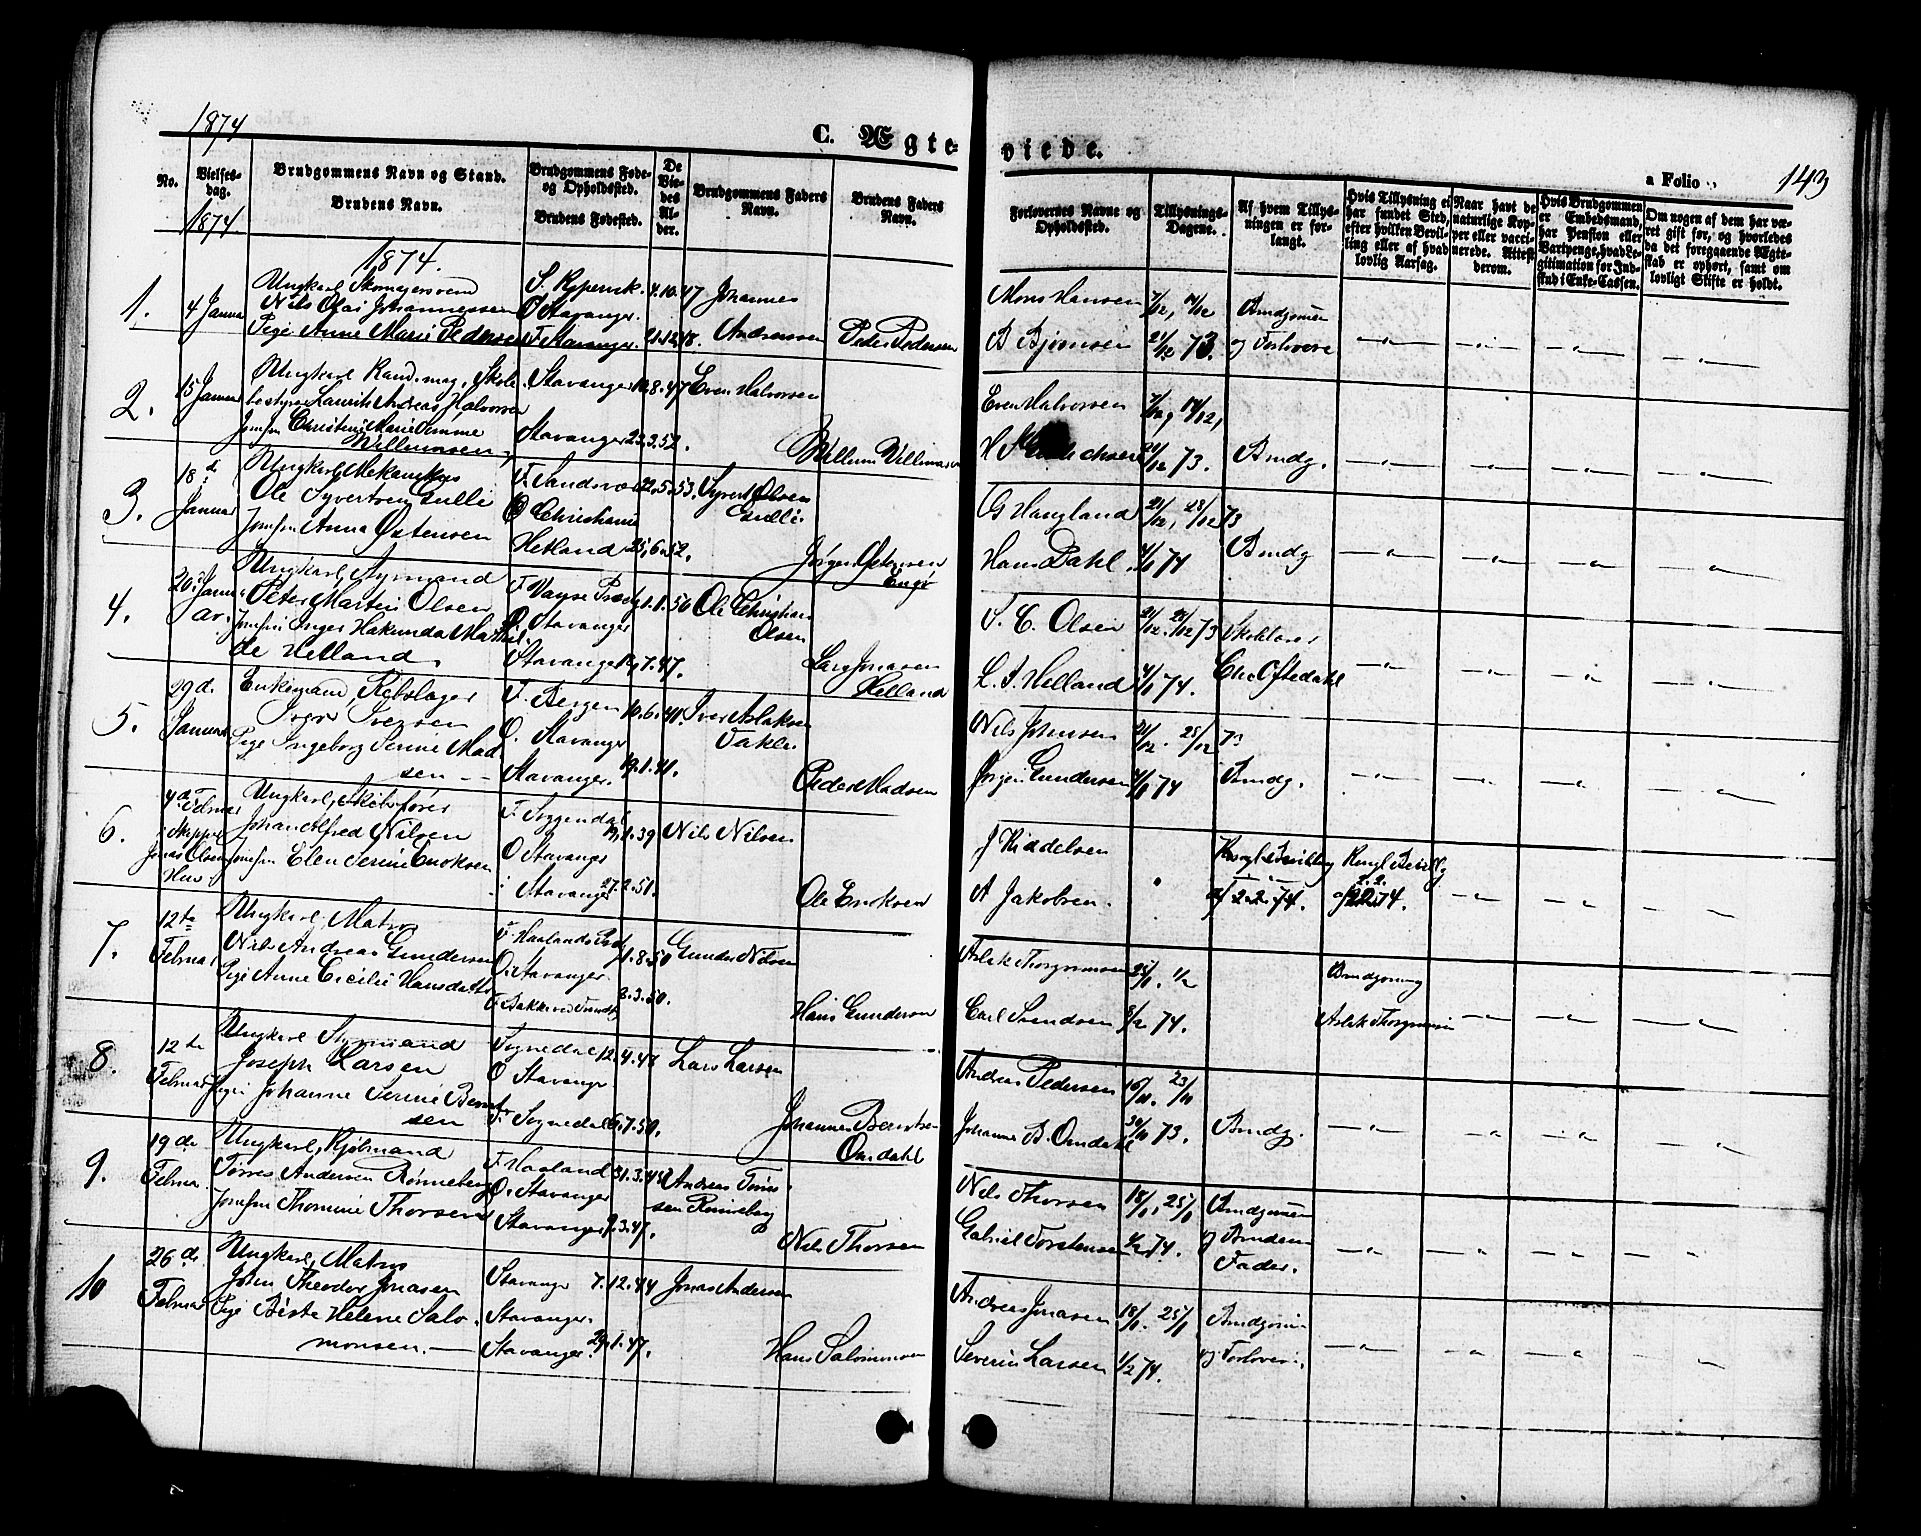 1874
C. Ægte-
viede.
a Folio
143
No.
Vielses-
dag.
1874
Brudgommens Navn og Stand.
Brudens Navn.
Brudgommens Føde-
og Opholdssted.
Brudens Fødested.
De
Vie-
des
Al-
der.
Brudgommens Faders
Navn.
Brudens Faders
Navn.
Forlovernes Navne og
Opholdssted.
Tillysnings-
Dagene.
Af hvem Tillys-
ningen er for-
langt.
Hvis Tillysning ei
har fundet Sted,
efter hvilken Bevil-
ling eller af hvad
lovlig Aarsag.
Naar havt de
naturlige Kop-
per eller vacci-
nerede. Attest
derom.
Hvis Brudgommen
er Embedsmand,
har Pension eller
Vartpenge, hvad Le-
gitimation for Ind-
skud i Enke-Cassen.
Om nogen af dem har væ-
ret gift før, og hvorledes
da det foregaaende Ægte-
skab er ophørt, samt om
lovligt Skifte er holdt.
1874.
1.
4 Januar
Ungkarl Skomagersvend
Nils Olai Johannessen
Pige Anne Marie Pedersen
O Stavanger.
F. Stavanger.
4.10.47
21.12.48.
Johannes
Andreassen
Peder Pedersen
Mons Hansen
B Bjørnsen
7/12, 14/12
21/12 73.
Brudgommen
og Forlovere
2.
15 Januar
Ungkarl Kand. mag, Skole
bestyrer Laurits Andreas Halvorsen
Jomfru Christine Marie
Willumsen
Stavanger
Stavanger
8.47
23.3.52.
Even Halvorsen
Willum Willumsen
Even Halvorsen
7/12, 14/12,
21/12 73.
Brudg.
3.
18 d
Januar
Ungkarl, Mekanikus
Ole Syvertsen Gulli
Jomfru Anna Østensen
F. Sandsvær
O Christiania
Hetland
22.5.53.
25.6.52.
Syvert Olsen
Gulli
Jørgen Østensen
Engø
G Haugland
Hans Dahl
21/12, 28/12 73
4/1 74
Brudg
4.
20 d Janu
ar.
Ungkarl, Styrmand
Peter Martin Olsen
Jomfru Inger Hakunda Mathil
de Helland
O. Stavanger
Stavanger
1.1.50
7.47.
Ole Christian
Olsen
Lars Jonasen
Helland
S. C. Olsen
L. J. Helland
21/12. 28/12 73
4/1 74.
Oftedahl
5.
29 d.
Januar
Enkemand, Rebslager
Iver Iversen
Pige Ingeborg Serine Mad
sen
F. Bergen
O. Stavanger
Stavanger.
10.6.41.
19.1.41.
Iver Aslaksen
Peder Madsen
Nils Johnsen
Jørgen Gundersen
21/12. 28/12 73
4/1 74
Brudg.
6.
4 d. Februar
i Skipper
Jonas Olsens
Hus
Ungkarl, Skibsfører
Johan Alfred Nilsen
Jomfru Elen Serine Enoksen
F. Soggendal
O Stavanger
i Stavanger
19.1.39
27.2.51.
Nils Nilsen
Ole Enoksen
J Kiddelsen
A Jakobsen.
Kongl. Bevilling
af 2.2.74.
Kongl. Bevilg
7.
12 te
Februar
Ungkarl, Matros
Nils Andreas Gundersen
Pige Anne Cecilie Hansdatter
F. Haalands Prstg
O. Stavanger.
1.8.50
8.3.50.
Gunder Nilsen
Hans Gundersen
Aslak Thorgrimsen
Carl Svendsen
25/1. 1/2
8/2 74.
Brudgom og
Aslak Thorgrimsen
8.
12 te
Februar
Ungkarl Styrmand
Joseph Larsen
Pige Johanne Serine Bernt
sen
Sognedal
O Stavanger
F. Sognedal
12.4.48
6.7.50.
Lars Larsen
Johannes Berntsen
Omdahl
Andreas Pedersen
Johannes B. Omdahl
16/11. 23/11
30/11 73.
Brudg.
9.
19 de
Februar
Ungkarl, Kjøbmand
Tørres Andersen Rønneberg
Jomfru Thomine Thorsen
F. Haaland
O. Stavanger
Stavanger
31.3.48
9.3.47.
Andreas Tørres
sen Rønneberg
Nils Thorsen
Nils Thorsen
Gabriel Torstensen
18/1, 25/1
1/2 74.
Brudgommen
og Brudens
Fader.
10
26 d.
Februar
Ungkarl, Matros
John Theodor Jonasen
Pige Berte Helene Salo
monsen.
Stavanger
Stavanger.
Stavanger.
7.12.44
29.1.47.
Jonas Andersen
Hans Salomonsen
Andreas Jonasen
Severin Larsen
18/1. 25/1
1/2 74.
Brudgommen
og Forlover